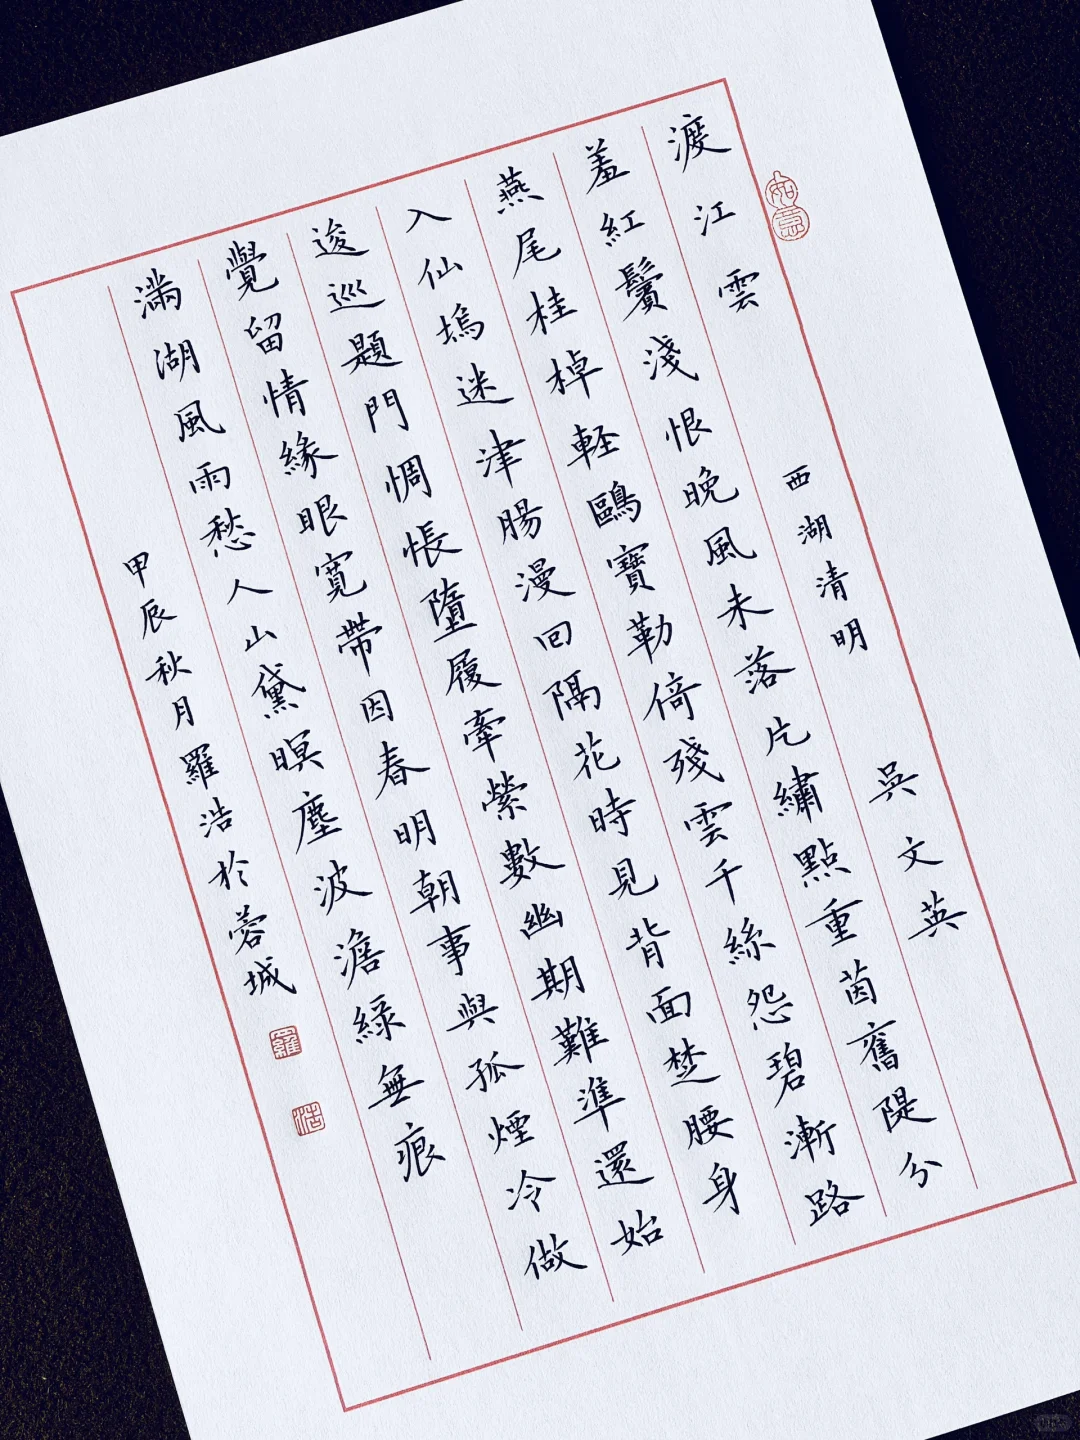 如意
渡江雲 西湖清明 吳文英
羞紅鬢淺恨晚風未落片繡點重茵舊隄分
燕尾桂棹軽鷗寶勒倚殘雲千絲怨碧漸路
入仙塢迷津腸漫回隔花時見背面楚腰身
逡巡題門惆悵墮履牽縈數幽期難準還始
覺留情緣眼寬帶因春明朝事與孤煙冷做
滿湖風雨愁人山黛暝塵波澹綠無痕
甲辰秋月羅浩於蓉城
羅
浩